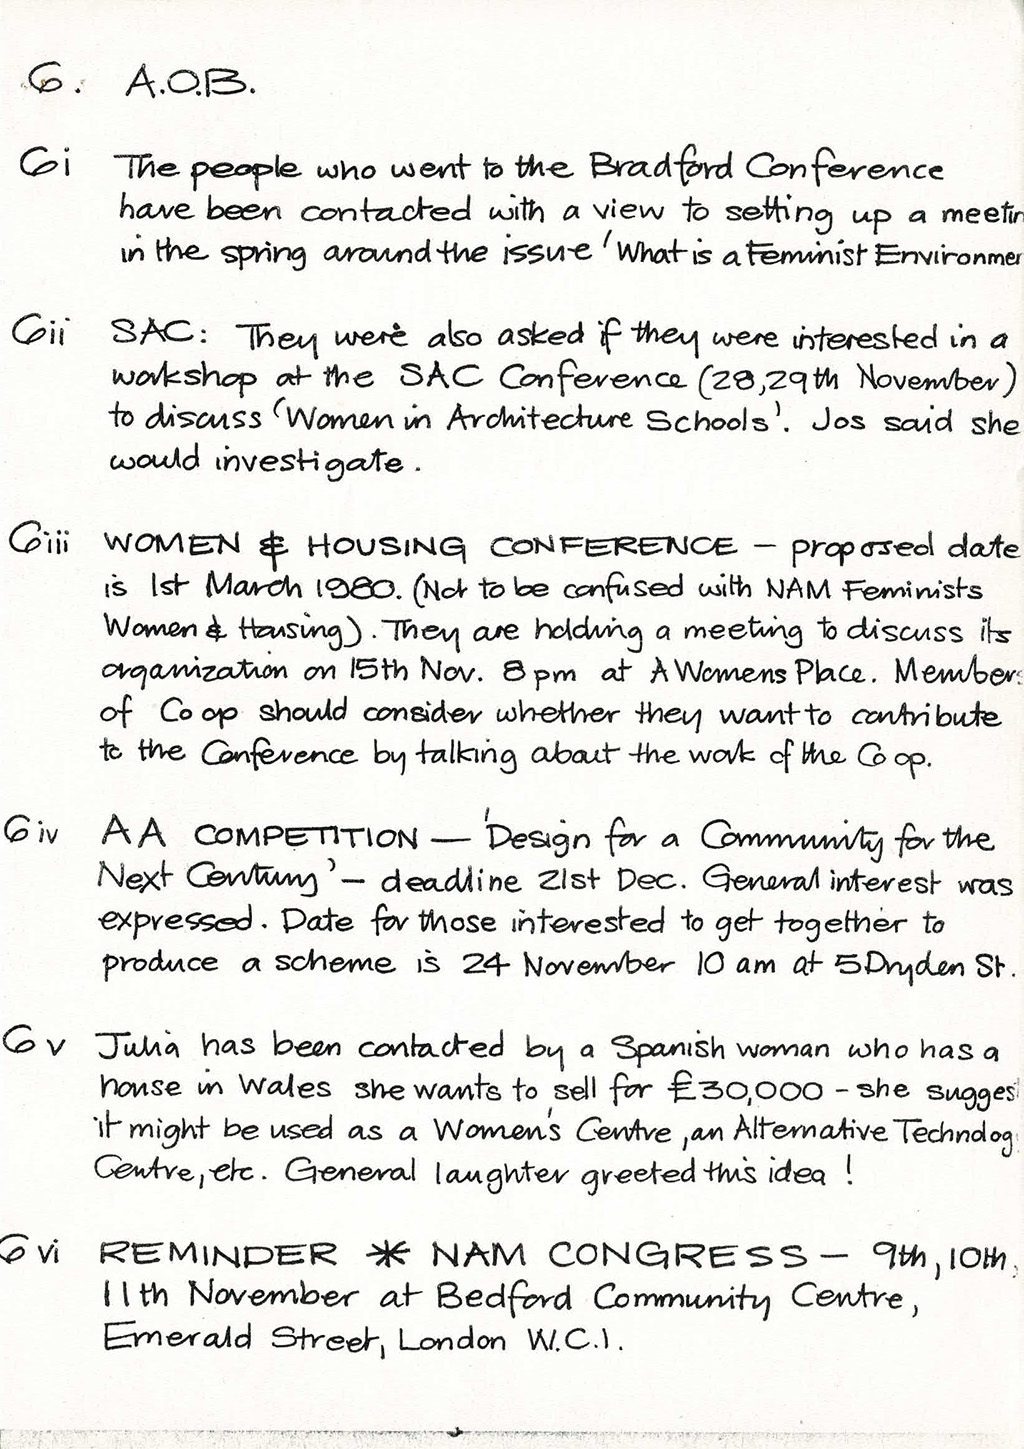 6. A.O.B.
6i The people who went to the Bradford Conference
have been contacted with a view to setting up a meetin
in the spring around the issue 'What is a Feminist Environmen
6ii SAC: They were also asked if they were interested in a
workshop at the SAC Conference (28,29th November)
to discuss 'Women in Architecture Schools'. Jos said she
would investigate.
6iii WOMEN & HOUSING CONFERENCE - proposed date
is 1st March 1980. (Not to be confused with NAM Feminists
Women & Housing). They are holding a meeting to discuss its
organization on 15th Nov. 8pm at A Womens Place. Members
of Co op should consider whether they want to contribute
to the Conference by talking about the work of the Co op.
6iv AA COMPETITION — 'Design for a Community for the
Next Century' - deadline 21st Dec. General interest was
expressed. Date for those interested to get together to
produce a scheme is 24 November 10 am at 5 Dryden St.
6v Julia has been contacted by a Spanish woman who has a
house in Wales she wants to sell for £30,000 - she sugges
it might be used as a Women's Centre, an Alternative Technolog
Centre, etc. General laughter greeted this idea!
6vi REMINDER * NAM CONGRESS - 9th, 10th,
11th November at Bedford Community Centre,
Emerald Street, London W.C.1.